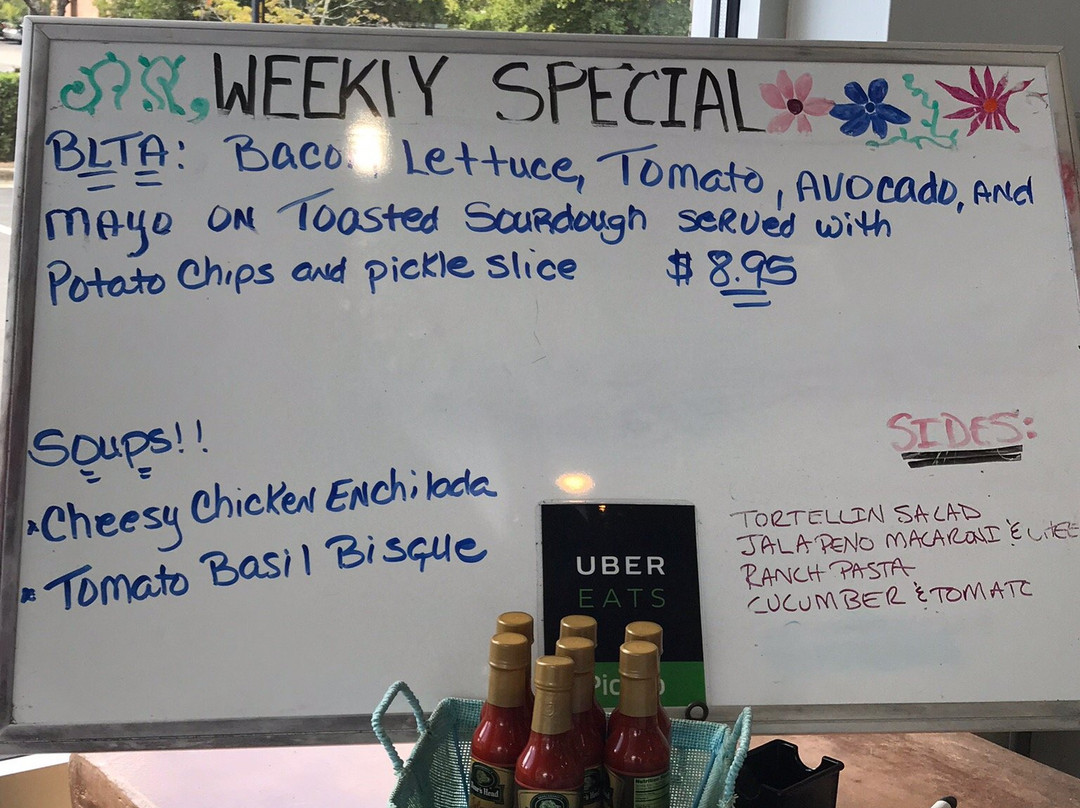 WEEKLY SPECIAL
BLTA: Lettuce, Tomato, AVOCADO, AND
MAYO ON Toasted Sourdough served with
Potato Chips and pickle slice $8.95
Soups!!
Cheesy Chicken Enchilada
Tomato Basil Bisque
SIDES:
TORTELLIN SALAD
JALAPENO MACARONI &
RANCH PASTA
CUCUMBER & TOMATO
UBER
EATS